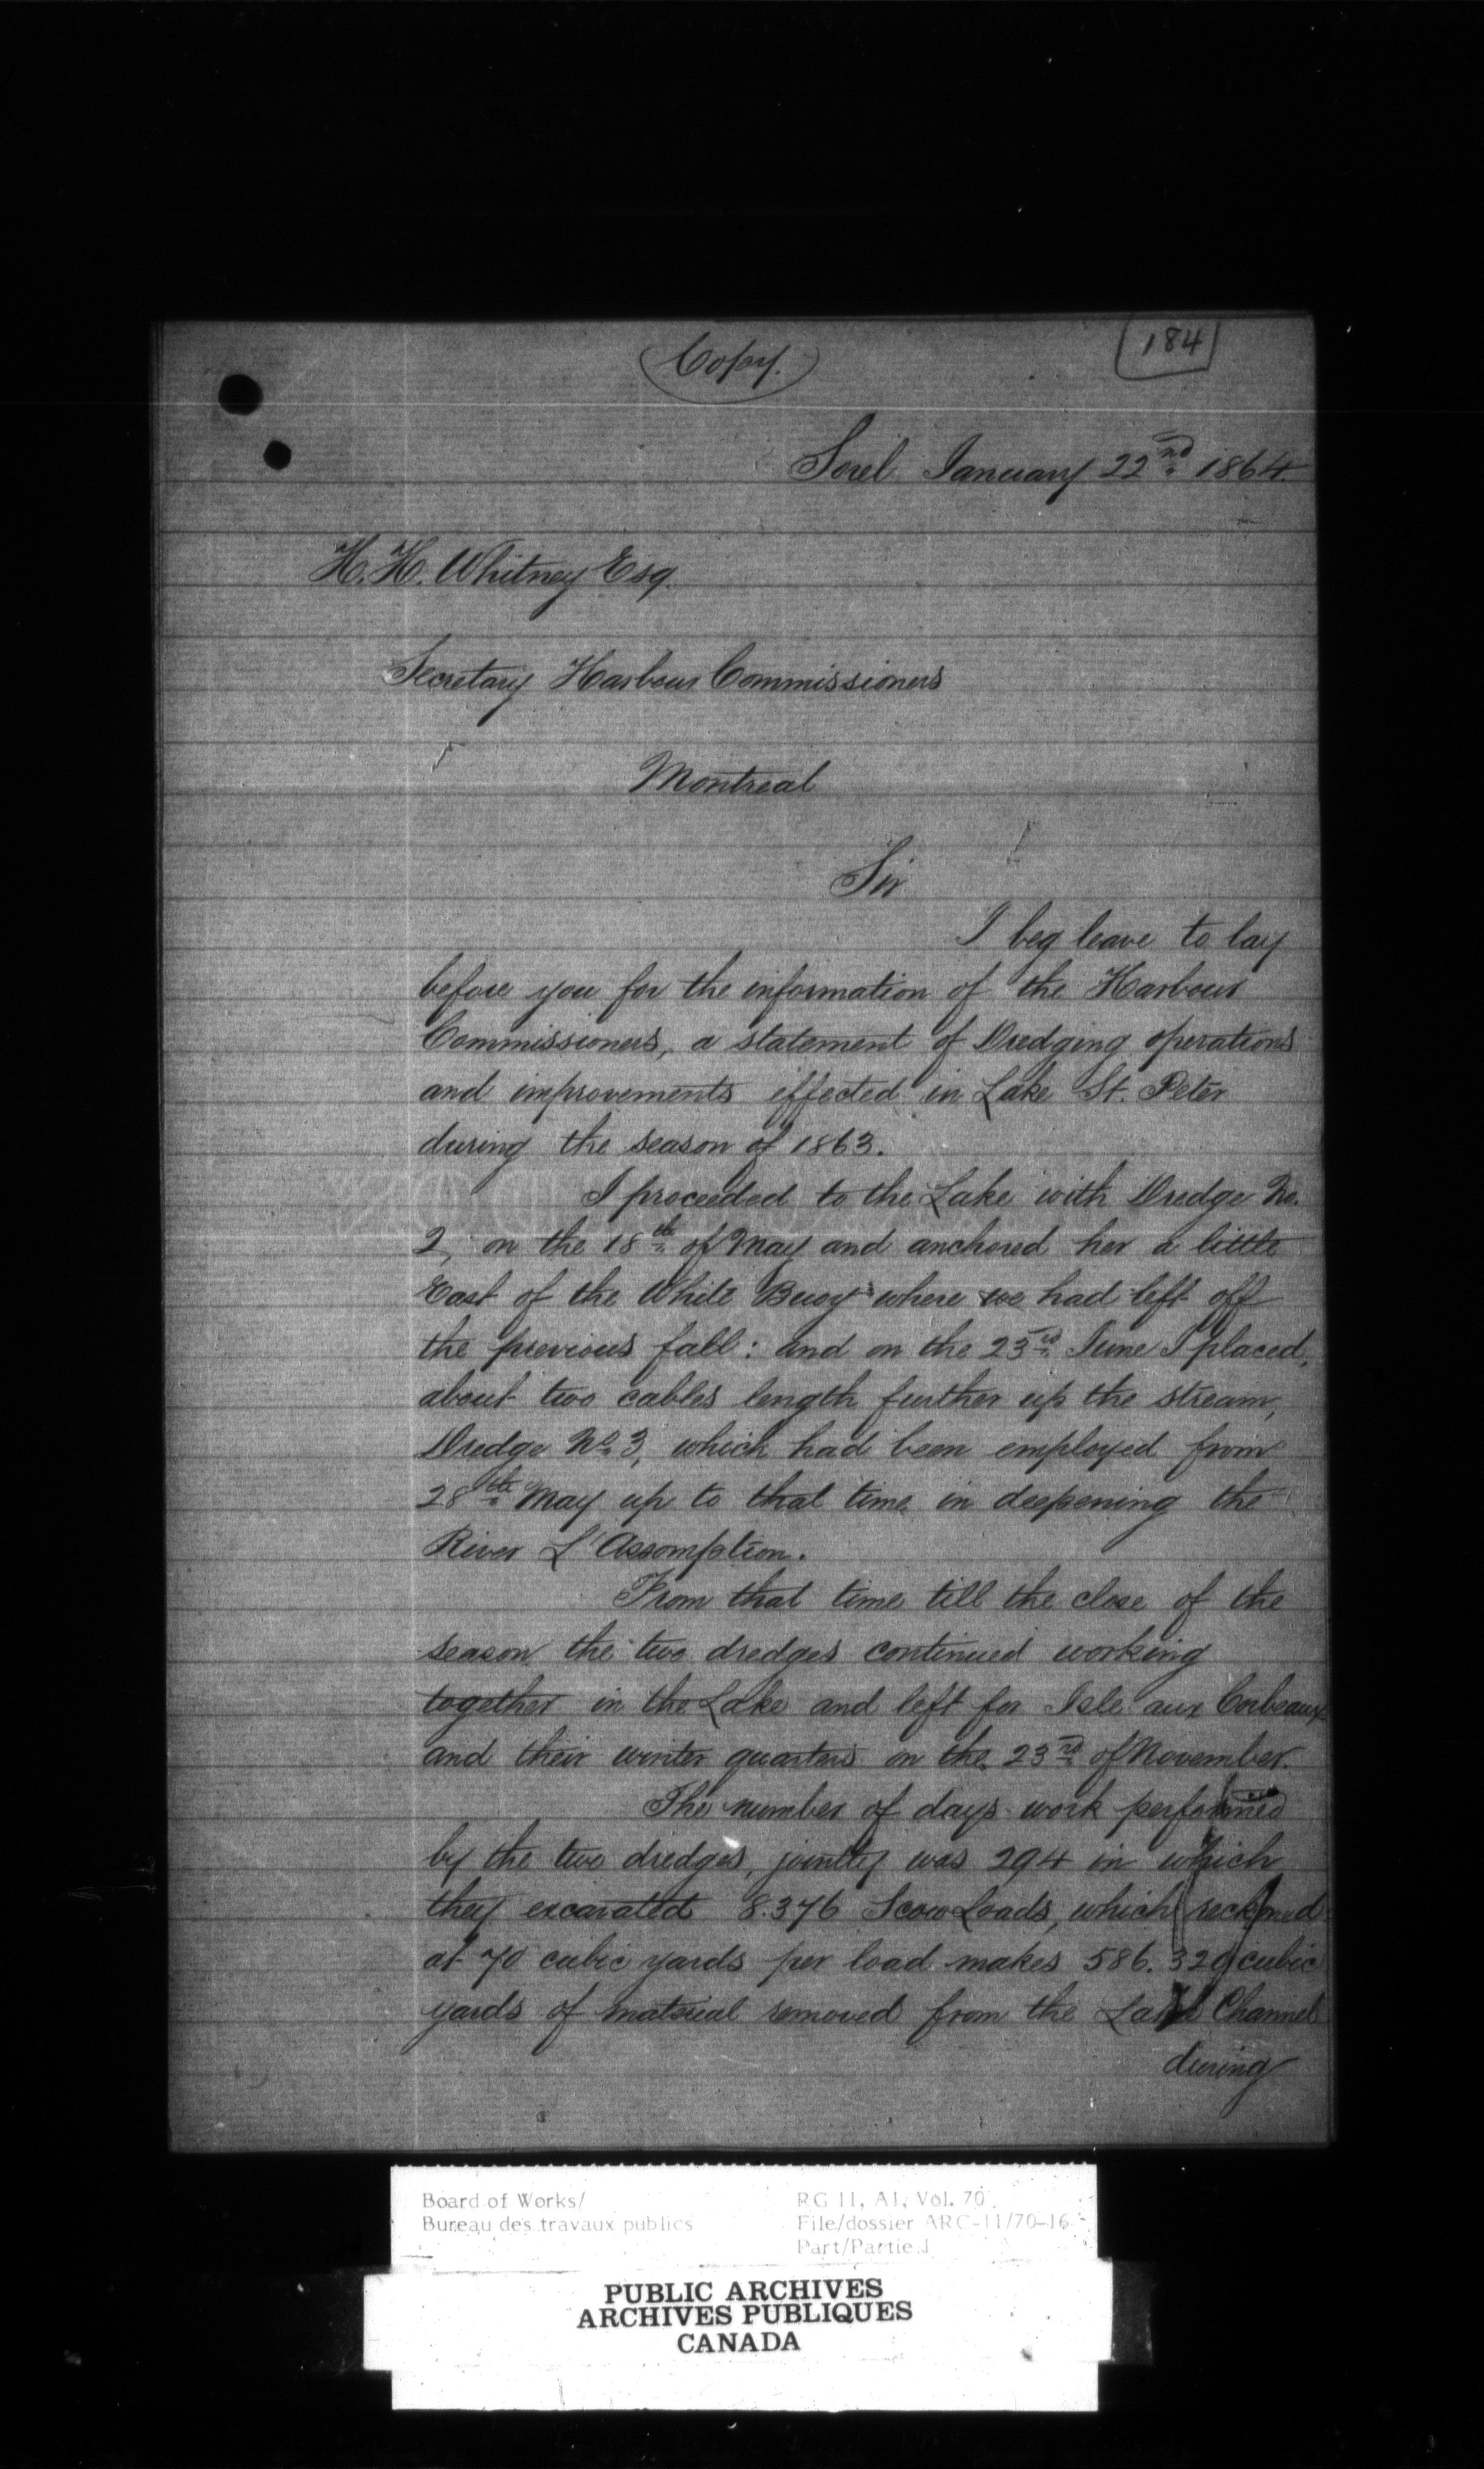 Copy.
184
Sorel January 22nd. 1864.
H. H. Whitney Esq.
Secretary Harbour Commissioners
Montreal
Sir
I beg leave to lay
before you for the information of the Harbour
Commissioners, a statement of Dredging operations
and improvements effected in Lake St. Peter
during the season of 1863.
I proceeded to the Lake with Dredge No.
2, on the 18th. of May and anchored her a little
East of the White Buoy where we had left off
the previous fall: and on the 23rd. June I placed,
about two cables length further up the stream,
Dredge No. 3, which had been employed from
28th. May up to that time in deepening the
River L'Assomption.
From that time till the close of the
season the two dredges continued working
together in the Lake and left for Isle aux Corbeaux
and their winter quarters on the 23rd. of November.
The number of days work performed
by the two dredges, jointly was 294 in which
they excavated 8.376 Scow Loads, which reckoned
at 70 cubic yards per load makes 586.320 cubic
yards of material removed from the Lake Channel
during
Board of Works/
Bureau des travaux publics
RG 11, A1, Vol. 70
File/dossier ARC-11/70-16
Part/Partie 1
PUBLIC ARCHIVES
ARCHIVES PUBLIQUES
CANADA